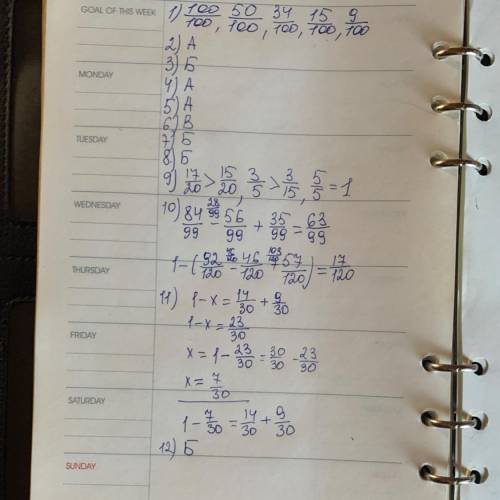 GOAL OF THIS WEEK
1) 100/100, 50/100, 34/100, 15/100, 9/100
2) А
3) Б
MONDAY
4) А
5) А
6) В
TUESDAY
7) Б
8) Б
9) 17/20 > 15/20, 3/5 > 3/15, 5/5 = 1
WEDNESDAY
28/99
10) 84/99 - 56/99 + 35/99 = 63/99
THURSDAY
1-(92/120 - 46/120 + 57/120) = 17/120
11) 1-x = 14/30 + 9/30
1-x = 23/30
FRIDAY
x = 1 - 23/30 = 30/30 - 23/30
x = 7/30
SATURDAY
1 - 7/30 = 14/30 + 9/30
12) Б
SUNDAY